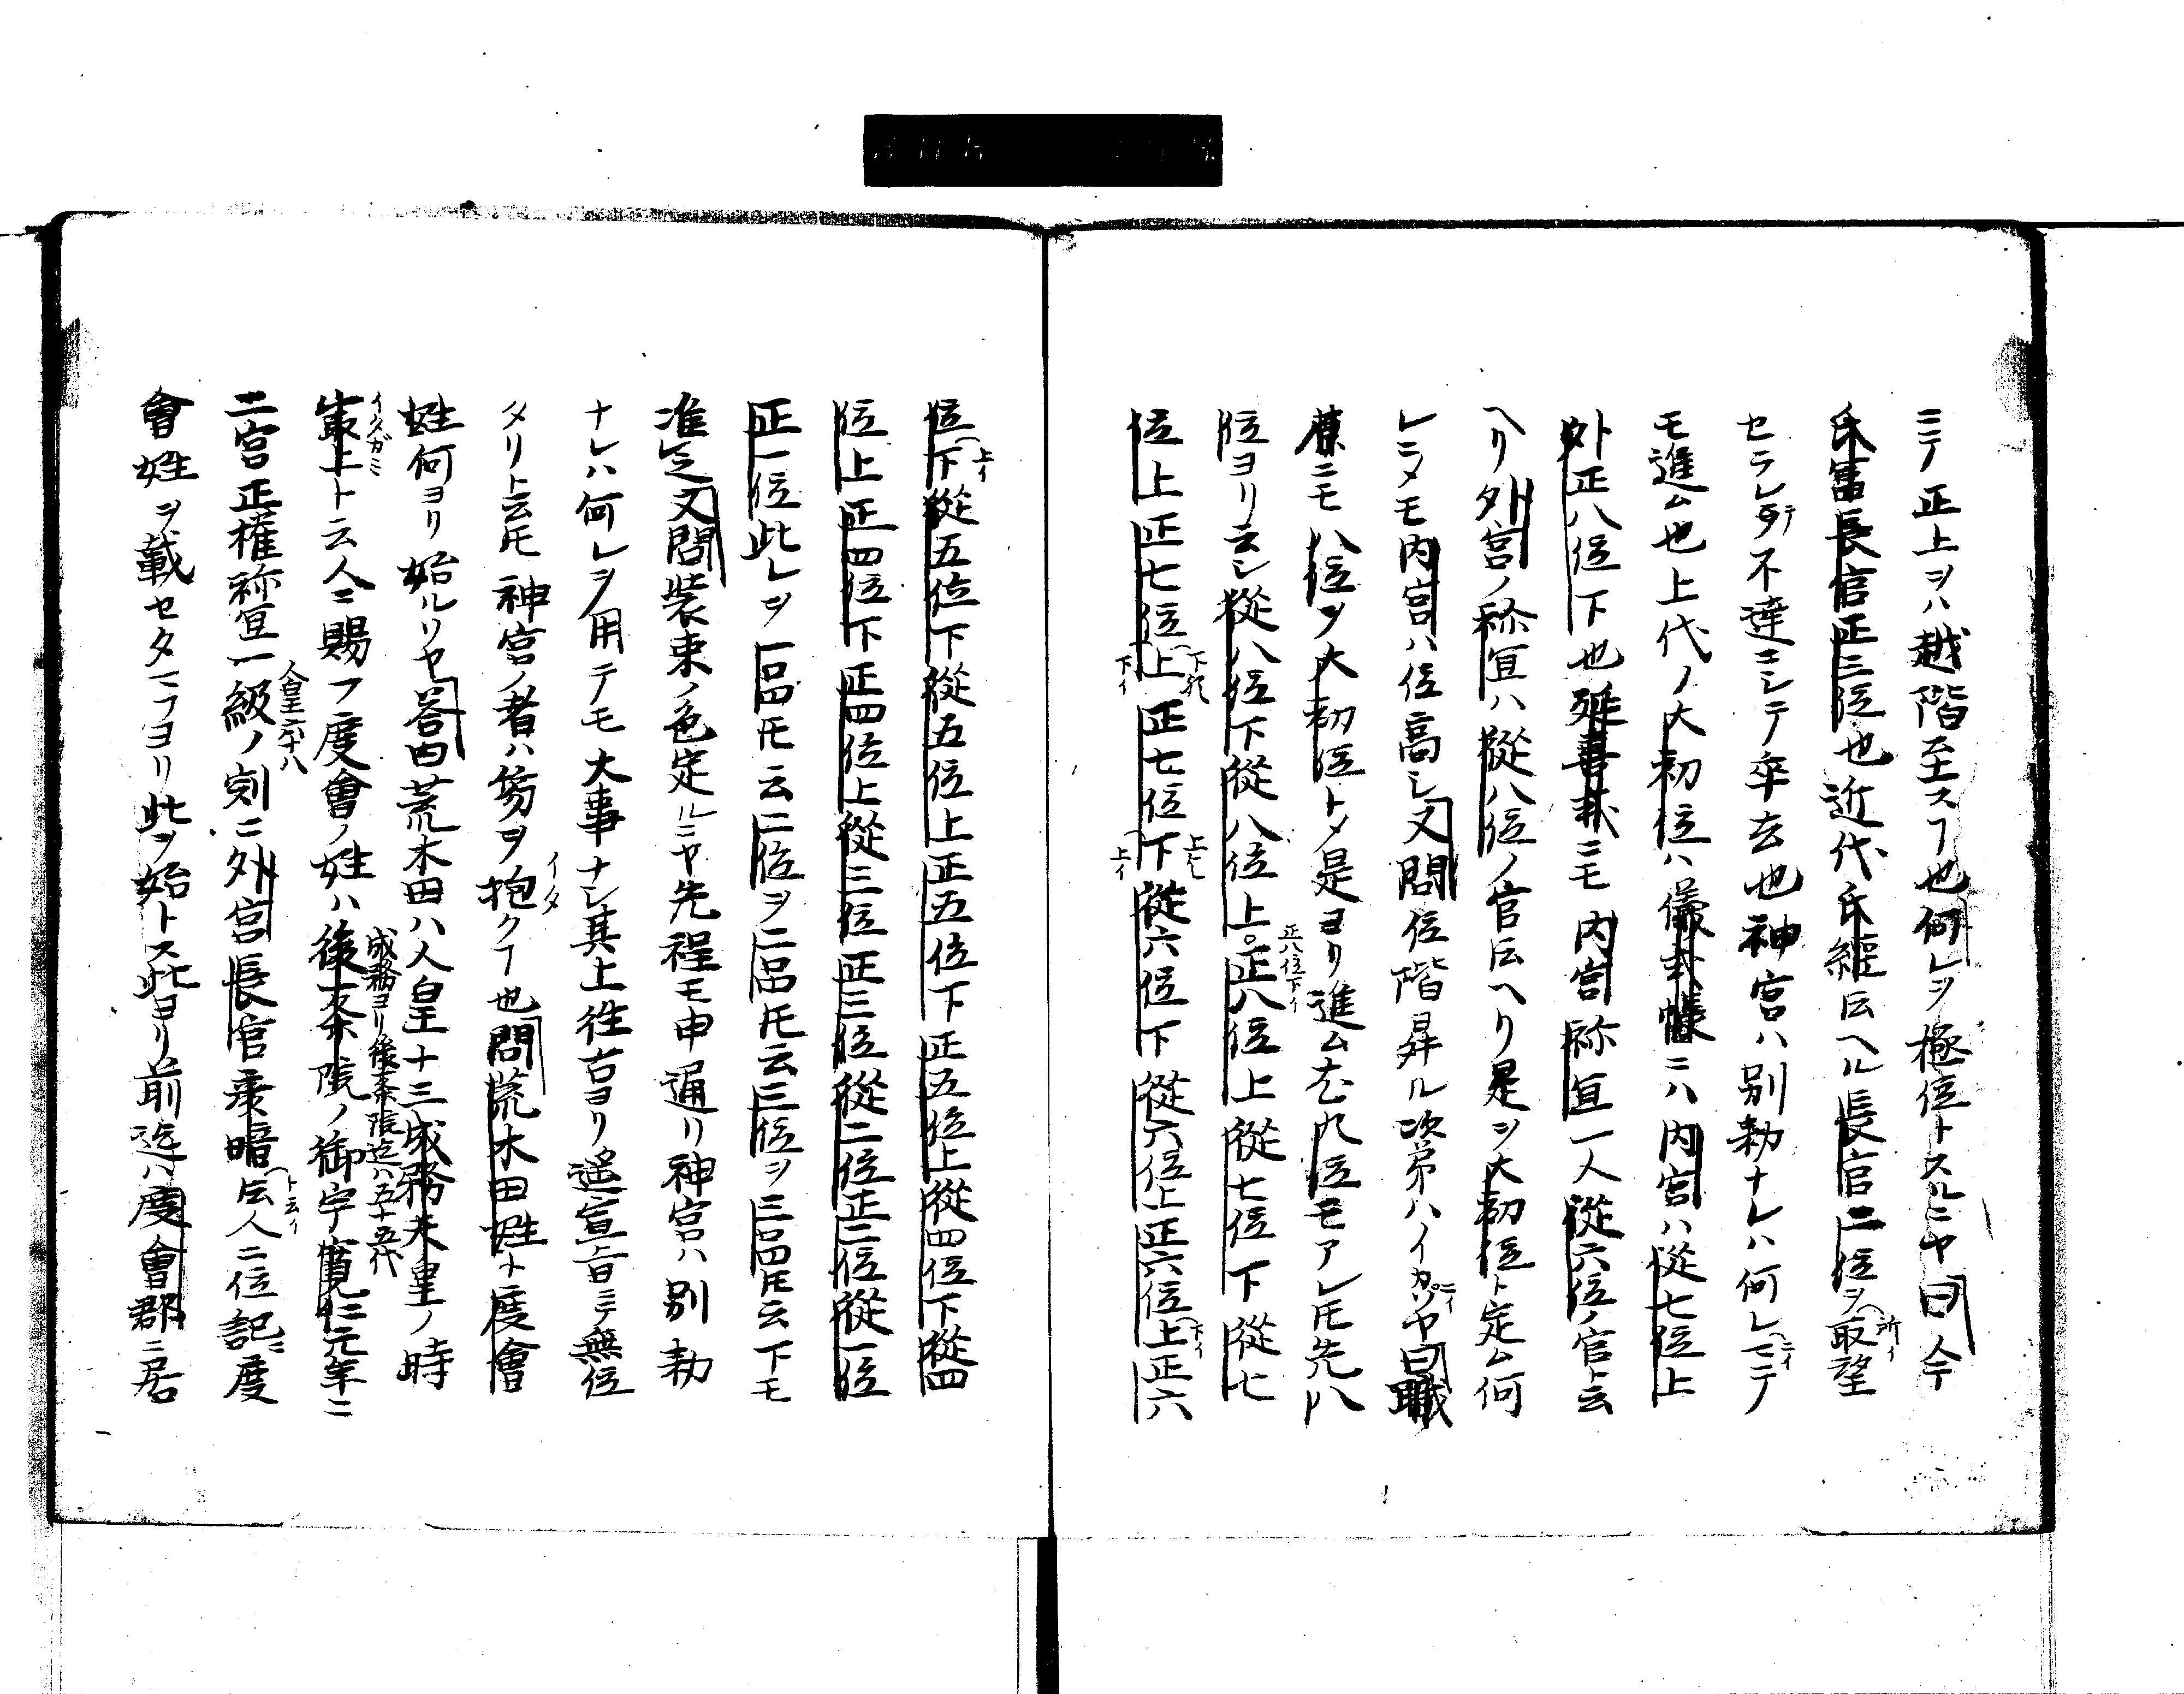 ニテ正上ヲハ越階至スヿ也何レヲ極位トスルニヤ曰今
氏富長官正三位也近代氏経云ヘル長官二位ヲ所イ取望
セラレテ不達シテ卒去也神宮ハ別勅ナレハ何レニイニテ
モ進ム也上代ノ大初位ハ儀式帳ニハ内宮ハ従七位上
外正八位下也延喜式ニモ内宮祢宜一人従六位ノ官ト云
ヘリ外宮ノ祢宜ハ従八位ノ官云ヘリ是ヲ大初位ト定ム何
レニメモ内宮ハ位高シ又問位階昇ル次第ハイカニイヤ曰職
ニモ八位ヲ大初位トメ是ヨリ進ム尤九位モアレ圧先八
位ヨリ云シ従八位下従八位上正八位下イ正八位上従七位下従七
位上正七位上下イ正七位下上イ従六位下従六位上正六位上下イ正六
位下上イ従五位下従五位上正五位下正五位上従四位下従四
位上正四位下正四位上従三位正三位従二位正二位従一位
正一位此レヲ一品四圧云二位ヲ二品圧云三位ヲ三品四圧云下モ
准之又問装束ノ色定ルニヤ先程モ申通リ神宮ハ別勅
ナレハ何レヲ用テモ大事ナシ其上往古ヨリ遥宣旨ニテ無位
タリト云圧神宮ノ者ハ笏ヲ抱イタクヿ也問荒木田姓ト度會
姓何ヨリ始ルリヤ答曰荒木田ハ人皇十三成務天皇ノ時
成務ヨリ後一条院迄ハ五十五代
最上イタガミト云人ニ賜フ度會ノ姓ハ後一条院ノ御宇寛仁元年ニ
人皇六十八
二宮正権祢宜一級ノ刻ニ外宮長官康晴云トニイ人ニ位記ニ度
會姓ヲ載セタマフヨリ此ヲ始トス此ヨリ前迄ハ度會郡ニ居